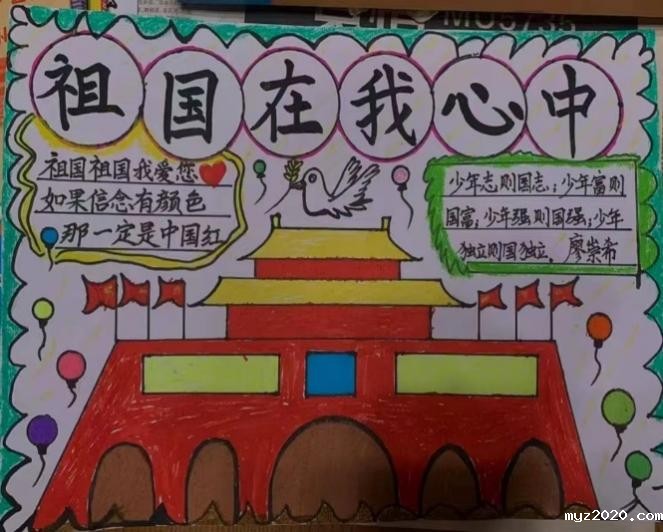 祖国在我心中
祖国祖国我爱您
如果信念有颜色
那一定是中国红
少年志则国志；少年富则
国富；少年强则国强；少年
独立则国独立。廖崇希
myz2020.com